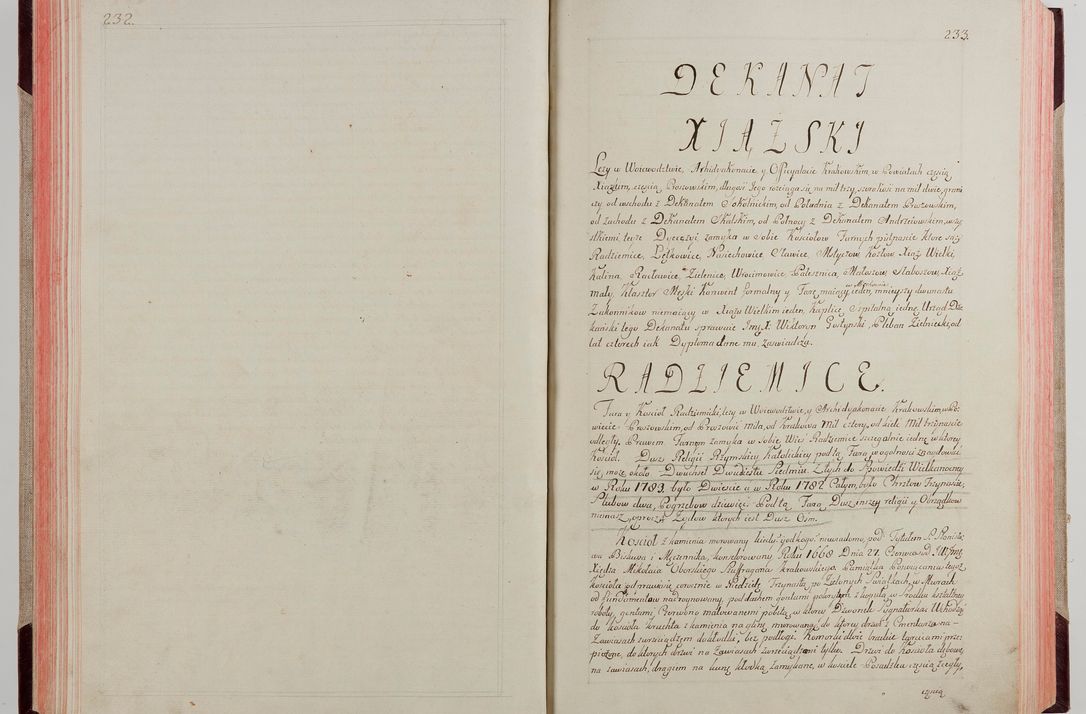 232.
233.
DEKANAT
XIĄZSKI
Lezy w Woiewodztwie, Archidyakonacie, y Officyalacie Krakowskim, w Powiatach częścią
Xiązkim, częścią Proszowskim, długość Jego rozciąga się na mil trzy, szerokość na mil dwie, grani
czy od wschodu z Dekanatem Sokolnickim, od Południa z Dekanatem Proszowskim,
od zachodu z Dekanatem Skalskim, od Pułnocy z Dekanatem Andrzeiowskim, wszy
stkiemi teyże Dyecezyi zamyka w sobie Kościołow Farnych piętnaście ktore są
Radziemice, Lętkowice, Nasiechowice, Sławice, Mstyczow, Kozłow, Xiąż Wielki,
Kalina, Racławice, Zielenice, Wrocimowice, Palecznica, Słaboszow, Xiąż
mały, Klasztor Męski Konwent formalny y Farę maiący ieden, mnieyszy dwunastu
Zakonnikow niemaiący w Xiążu Wielkim ieden, Kaplicę Szpitalną iednę, Urząd Dzie
kański tego Dekanatu sprawuie Imć X. Wiktoryn Gostynski, Pleban Zielnicki, od
lat czterech iak Dyploma dane mu, zaswiadcza.
RADZIEMICE.
Fara y Kościoł Radziemicki, lezy w Woiewodztwie, y Archidyakonacie Krakowskim, w Po-
wiecie Proszowskim, od Proszowic mila, od Krakowa Mil cztery, od Kielc Mil trzynaście
odległy. Prawem Farnym zamyka w sobie Wieś Radziemice szczegulnie iednę w ktorey
Kościoł. Dusz Religii Rzymskiey Katolickiey pod tą Farą w ogolności znaydować
się może około Dwuchset Dwudziestu Siedmiu. Z tych do Spowiedzi Wielkanocney
w Roku 1783. było Dwieście a w Roku 1782. Całym, było Chrztow Trzynaście,
Slubow dwa, Pogrzebow dziewięć. Pod tą Farą Dusz inszey religii y Obrządkow
niemasz, oprocz Żydow ktorych iest Dusz Ośm.
Kościoł z kamienia murowany kiedy y od kogo? niewiadomo, pod Tytułem S. Stanisła
wa Biskupa i Męczennika, konsekrowany Roku 1668 Dnia 27. Czerwca od
Xiędza Mikołaia Oborskiego Suffragana Krakowskiego. Pamiątka Poswiącania tegoż
Kościoła odprawuie się corocznie w Niedzielę Trzynastą po Zielonych Swiątkach, w Murach
od fundamentow nadrysowany, pod dachem gontami pokrytym z kopułą w srodku kształtney
roboty, gontami, Czerwono malowanemi pobitą, w ktorey Dzwonek Sygnaturka. Wchodzi
do Kościoła kruchta z kamienia na glinę murowana, do ktorey drzwi z Cmentarza na
Zawiasach z wrzeciądzem do kłodki, bez podłogi. Komorki dwie
do ktorych drzwi na Zawiasach z wrzeciądzami tylko. Drzwi do Kościoła dębowe,
na zawiasach, drągiem na kunę kłodką zamykane, w Kościele Posadzka częścią z cegły,
częścią